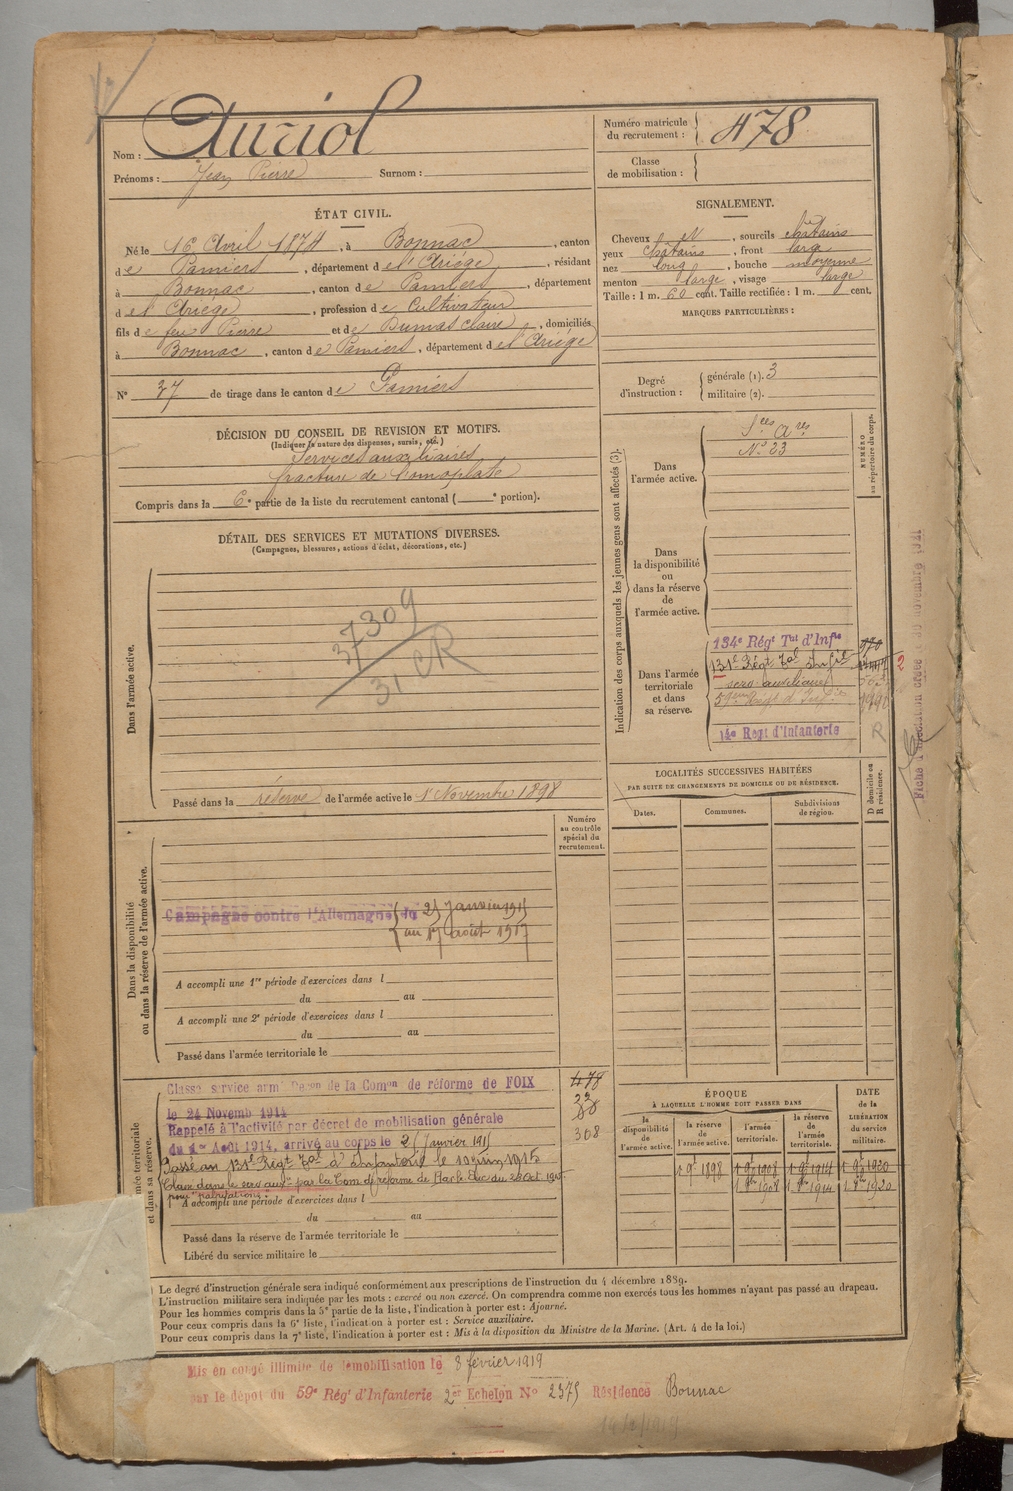 Nom : Auriol
Prénoms : Jean Pierre Surnom :
Numéro matricule du recrutement : 478
Classe de mobilisation :
ÉTAT CIVIL.
Né le 16 Avril 1874, à Bonnac, canton
de Pamiers, département de l'Ariège, résidant
à Bonnac, canton de Pamiers, département
de l'Ariège, profession de Cultivateur
fils de feu Pierre et de Dumas Claire, domiciliés
à Bonnac, canton de Pamiers, département de l'Ariège
N° 37 de tirage dans le canton de Pamiers
SIGNALEMENT.
Cheveux et sourcils châtains
yeux châtains, front large
nez long, bouche moyenne
menton large, visage large
Taille : 1 m. 60 cent. Taille rectifiée : 1 m. cent.
MARQUES PARTICULIÈRES :
Degré d'instruction : générale (1). 3
militaire (2).
DÉCISION DU CONSEIL DE REVISION ET MOTIFS.
(Indiquer la nature des dispenses, sursis, etc.)
Services auxiliaires
fracture de l'omoplate
Compris dans la 6e partie de la liste du recrutement cantonal ( e portion).
DÉTAIL DES SERVICES ET MUTATIONS DIVERSES.
(Campagnes, blessures, actions d'éclat, décorations, etc.)
Dans l'armée active.
37309
31 CR
Passé dans la réserve de l'armée active le 1er Novembre 1898
Indication des corps auxquels les jeunes gens sont affectés (3).
NUMÉRO au répertoire du corps.
Dans l'armée active.
Sces Ares
N° 23
Dans la disponibilité ou dans la réserve de l'armée active.
Dans l'armée territoriale et dans sa réserve.
134e Régt Tal d'Infie
131e Régt Tal Infie
serv auxiliaires
14e Regt d'Infanterie
R
2
LOCALITÉS SUCCESSIVES HABITÉES
PAR SUITE DE CHANGEMENTS DE DOMICILE OU DE RÉSIDENCE.
Dates.
Communes.
Subdivisions de région.
D domicile ou R résidence.
Numéro au contrôle spécial du recrutement.
Dans la disponibilité ou dans la réserve de l'armée active.
Campagne contre l'Allemagne du 25 janvier 1915
au 17 août 1917
A accompli une 1re période d'exercices dans l
du au
A accompli une 2e période d'exercices dans l
du au
Passé dans l'armée territoriale le
Classé service armé Décon de la Comon de réforme de FOIX
le 24 Novemb 1914
Rappelé à l'activité par décret de mobilisation générale
du 1er Août 1914, arrivé au corps le 25 Janvier 1915
Passé au 131e Régt Tal d'Infanterie le 10 juin 1915
Classé dans le serv auxre par la Com de réforme de Bar le Duc du 28 Oct. 1915
pour "palpitations".
478
308
A accompli une période d'exercices dans l
du au
Passé dans la réserve de l'armée territoriale le
Libéré du service militaire le
ÉPOQUE
À LAQUELLE L'HOMME DOIT PASSER DANS
la disponibilité de l'armée active.
la réserve de l'armée active.
l'armée territoriale.
la réserve de l'armée territoriale.
DATE de la LIBÉRATION du service militaire.
1 9e 1898
1 9e 1908
1 9e 1914
1 9e 1920
Le degré d'instruction générale sera indiqué conformément aux prescriptions de l'instruction du 4 décembre 1889.
L'instruction militaire sera indiquée par les mots : exercé ou non exercé. On comprendra comme non exercés tous les hommes n'ayant pas passé au drapeau.
Pour les hommes compris dans la 5e partie de la liste, l'indication à porter est : Ajourné.
Pour ceux compris dans la 6e liste, l'indication à porter est : Service auxiliaire.
Pour ceux compris dans la 7e liste, l'indication à porter est : Mis à la disposition du Ministre de la Marine. (Art. 4 de la loi.)
Mis en congé illimité de démobilisation le 8 février 1919
par le dépôt du 59e Régt d'Infanterie 2er Echelon N° 2375 Résidence Bonnac